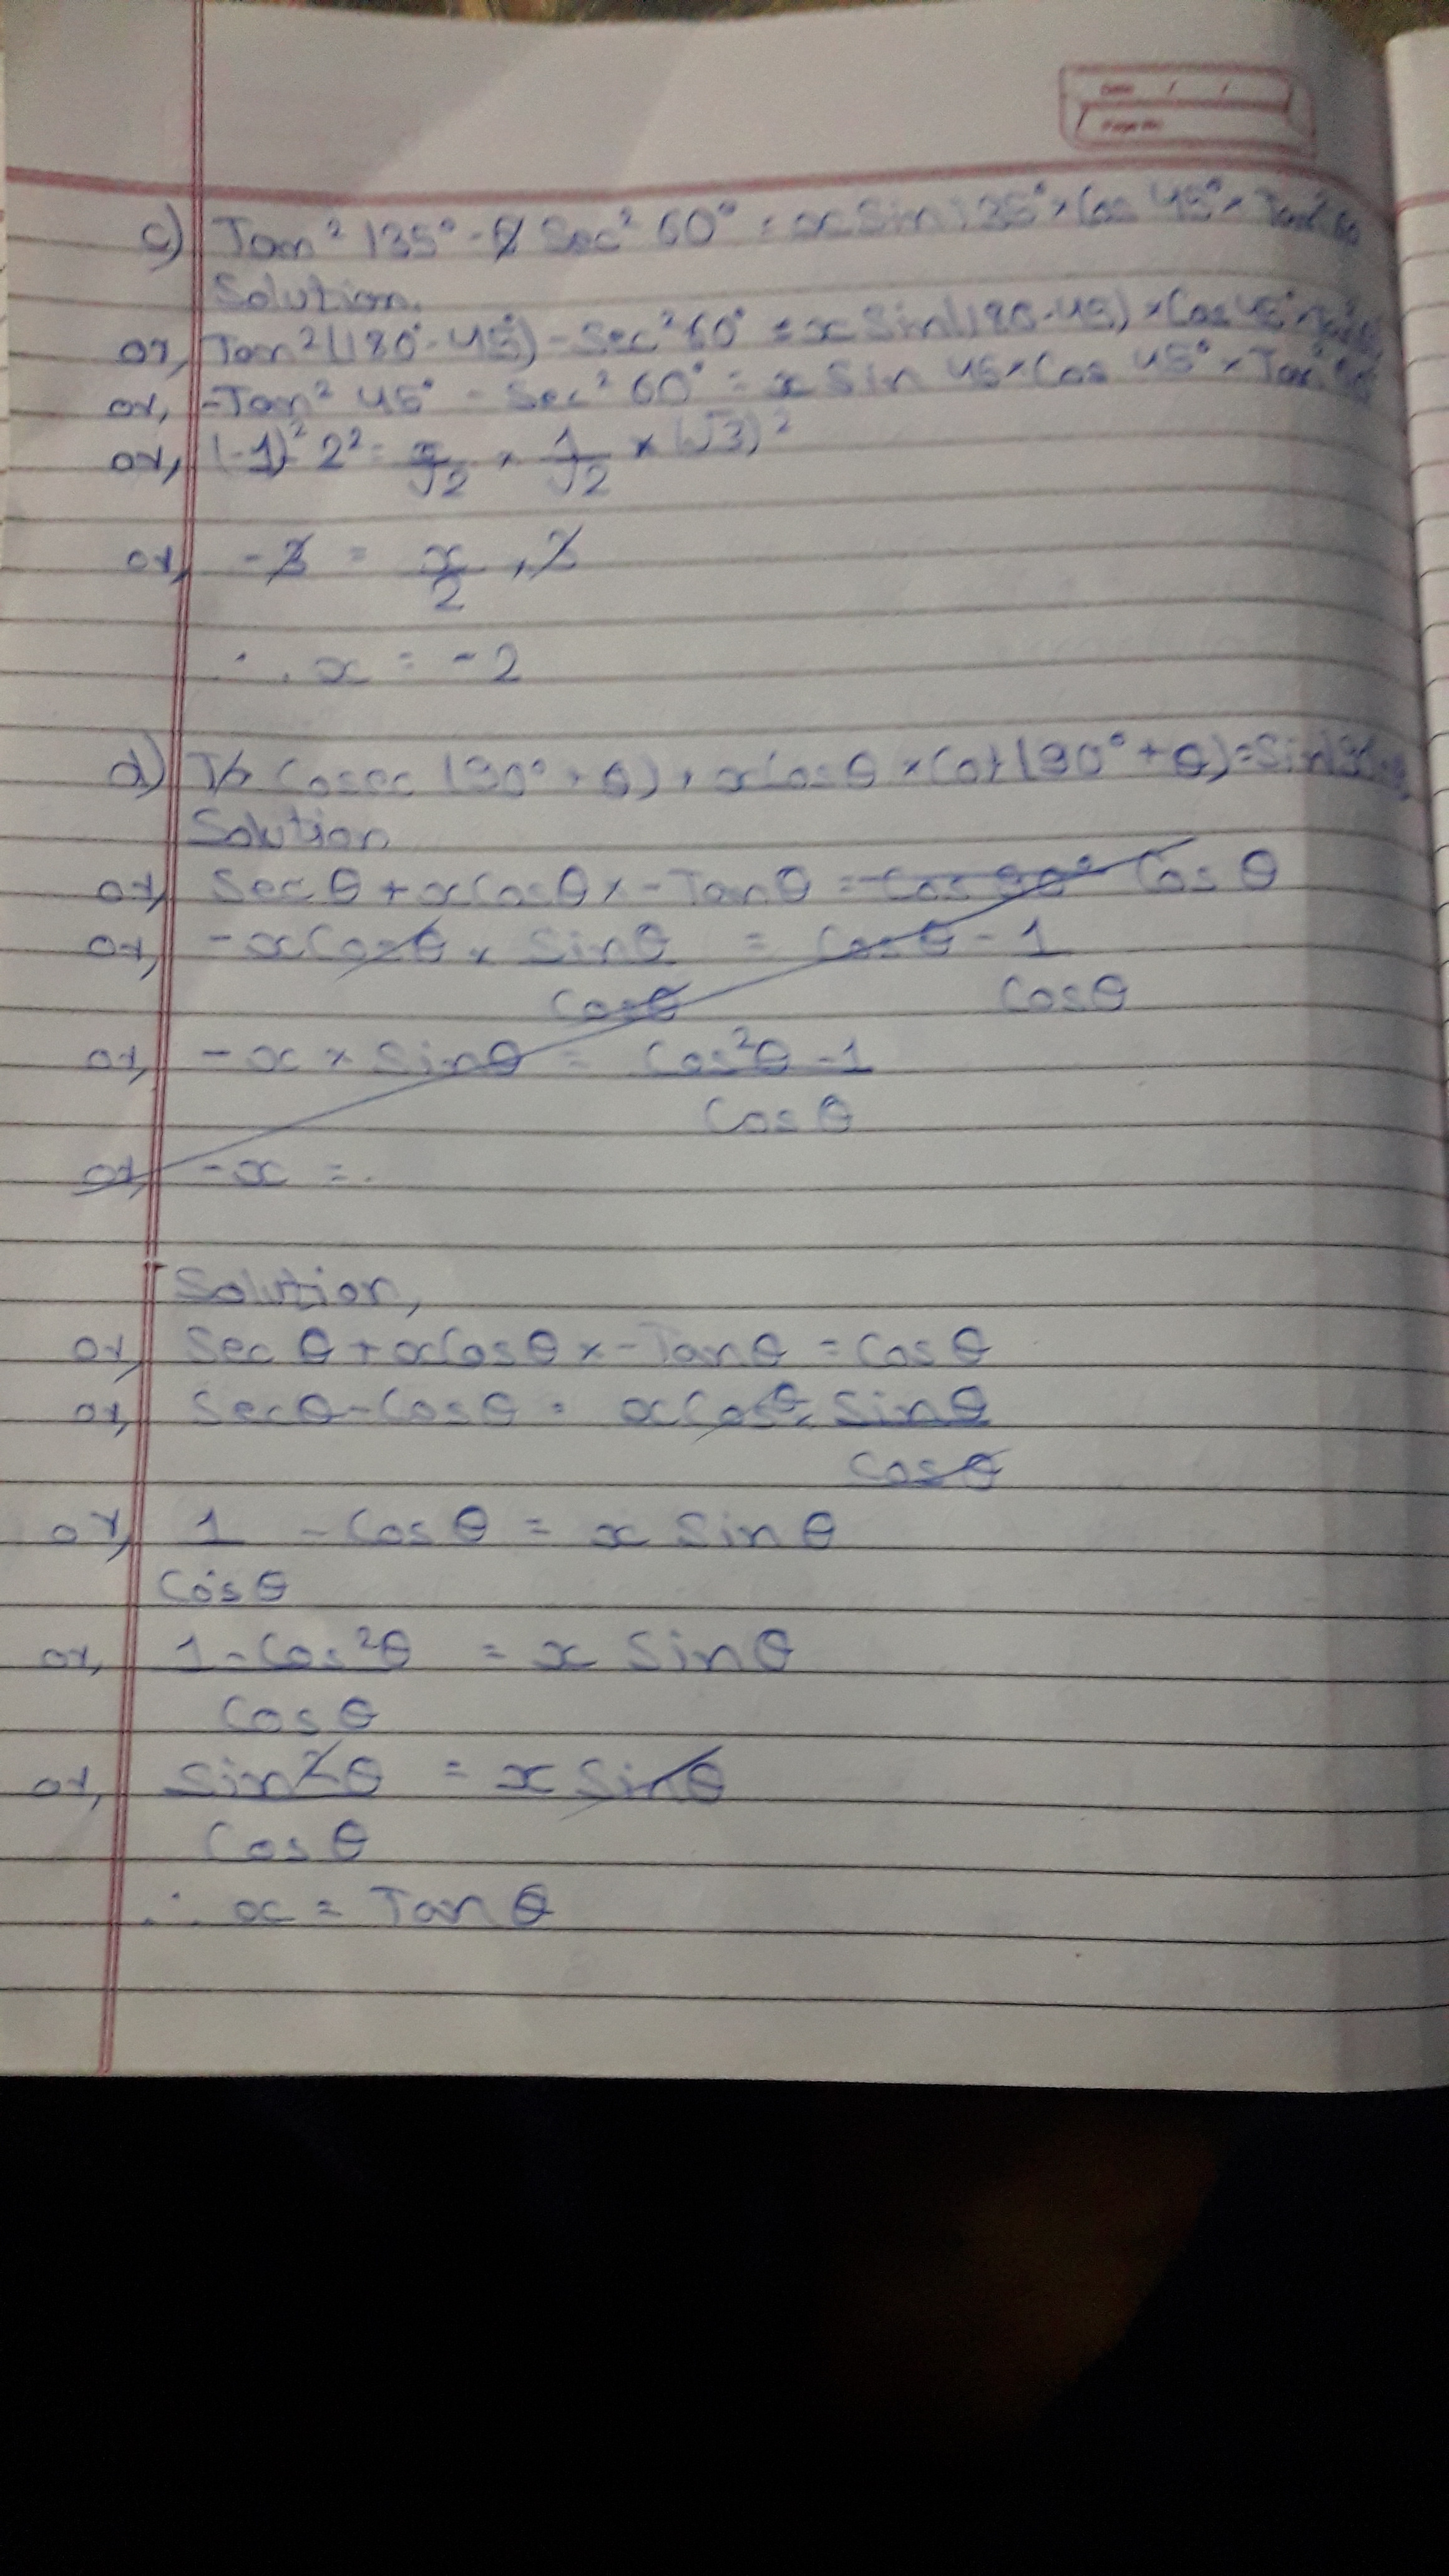 Date / /
Page No
c) Tan² 135° - Sec² 60° = x Sin 135° × Cos 45° × Tan² 60
Solution.
or, Tan² (180° - 45°) - Sec² 60° = x Sin (180 - 45) × Cos 45°
or, - Tan² 45° - Sec² 60° = x Sin 45 × Cos 45° × Tan²
or, (-1)² - 2² = x/√2 × 1/√2 × (√3)²
or, - 3 = x/2 × 3
∴ x = - 2
d) Cosec (90° + θ) + x Cos θ × Cot (90° + θ) = Sin
Solution
or, Sec θ + x Cos θ × - Tan θ = Cos 90° Cos θ
or, - x Cos θ × Sin θ / Cos θ = Cos θ - 1 / Cos θ
or, - x × Sin θ = Cos² θ - 1 / Cos θ
or, - x =
Solution,
or, Sec θ + x Cos θ × - Tan θ = Cos θ
or, Sec θ - Cos θ = x Cos θ × Sin θ / Cos θ
or, 1 / Cos θ - Cos θ = x Sin θ
or, 1 - Cos² θ / Cos θ = x Sin θ
or, Sin² θ / Cos θ = x Sin θ
∴ x = Tan θ